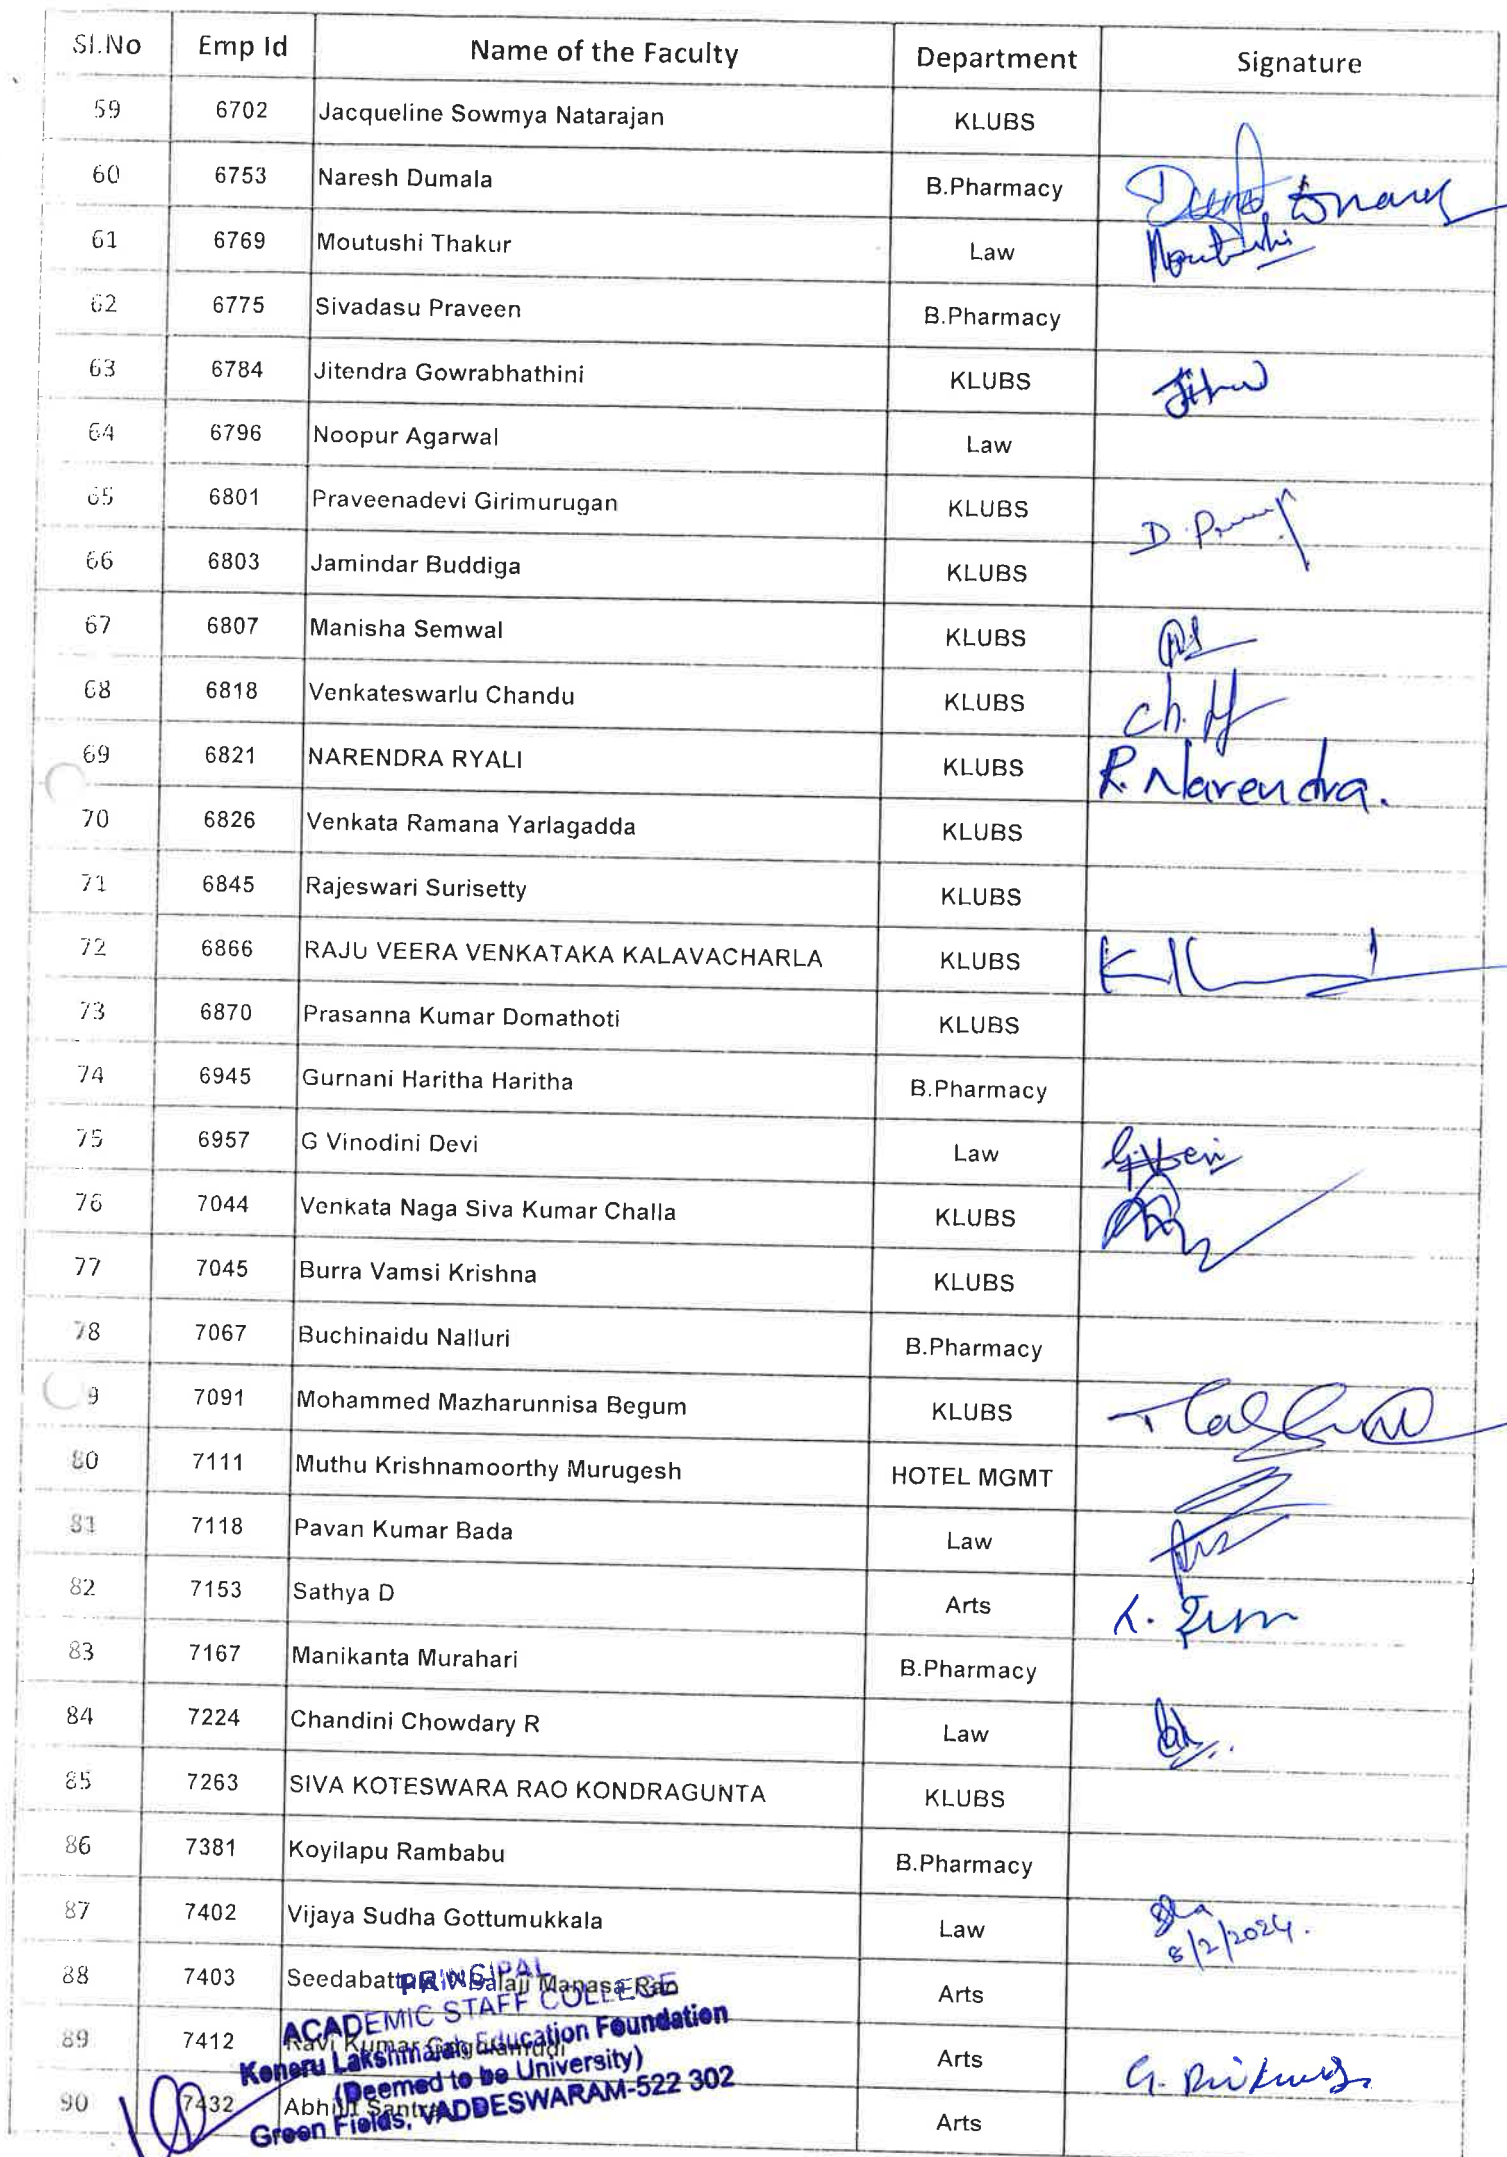 Sl.No Emp Id Name of the Faculty Department Signature
59 6702 Jacqueline Sowmya Natarajan KLUBS
60 6753 Naresh Dumala B.Pharmacy
61 6769 Moutushi Thakur Law Moutushi
62 6775 Sivadasu Praveen B.Pharmacy
63 6784 Jitendra Gowrabhathini KLUBS
64 6796 Noopur Agarwal Law
65 6801 Praveenadevi Girimurugan KLUBS D.
66 6803 Jamindar Buddiga KLUBS
67 6807 Manisha Semwal KLUBS
68 6818 Venkateswarlu Chandu KLUBS Ch.
69 6821 NARENDRA RYALI KLUBS R. Narendra.
70 6826 Venkata Ramana Yarlagadda KLUBS
71 6845 Rajeswari Surisetty KLUBS
72 6866 RAJU VEERA VENKATAKA KALAVACHARLA KLUBS
73 6870 Prasanna Kumar Domathoti KLUBS
74 6945 Gurnani Haritha Haritha B.Pharmacy
75 6957 G Vinodini Devi Law
76 7044 Venkata Naga Siva Kumar Challa KLUBS
77 7045 Burra Vamsi Krishna KLUBS
78 7067 Buchinaidu Nalluri B.Pharmacy
9 7091 Mohammed Mazharunnisa Begum KLUBS
80 7111 Muthu Krishnamoorthy Murugesh HOTEL MGMT
81 7118 Pavan Kumar Bada Law
82 7153 Sathya D Arts
83 7167 Manikanta Murahari B.Pharmacy
84 7224 Chandini Chowdary R Law
85 7263 SIVA KOTESWARA RAO KONDRAGUNTA KLUBS
86 7381 Koyilapu Rambabu B.Pharmacy
87 7402 Vijaya Sudha Gottumukkala Law
8/2/2024.
88 7403 Balaji Manasa Rao Arts
89 7412 Ravi Kumar Arts G.
90 7432 Abhijit Santra Arts
PRINCIPAL
ACADEMIC STAFF COLLEGE
Koneru Lakshmaiah Education Foundation
(Deemed to be University)
Green Fields, VADDESWARAM-522 302